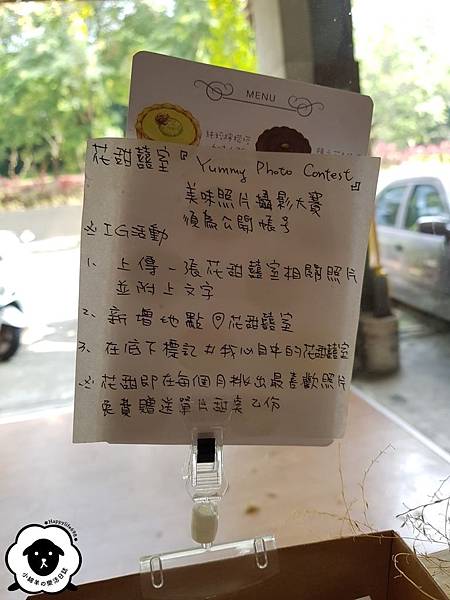 MENU
花甜囍室『Yummy Photo Contest』
美味照片攝影大賽
須為公開帳号
※IG活動
1. 上傳一張花甜囍室相關照片
並附上文字
2. 新增地點 花甜囍室
3. 在底下標記#我心目中的花甜囍室
※花甜即在每個月挑出最喜歡照片
免費贈送單片甜素乙份
Happylife@@
小綿羊の樂活日誌